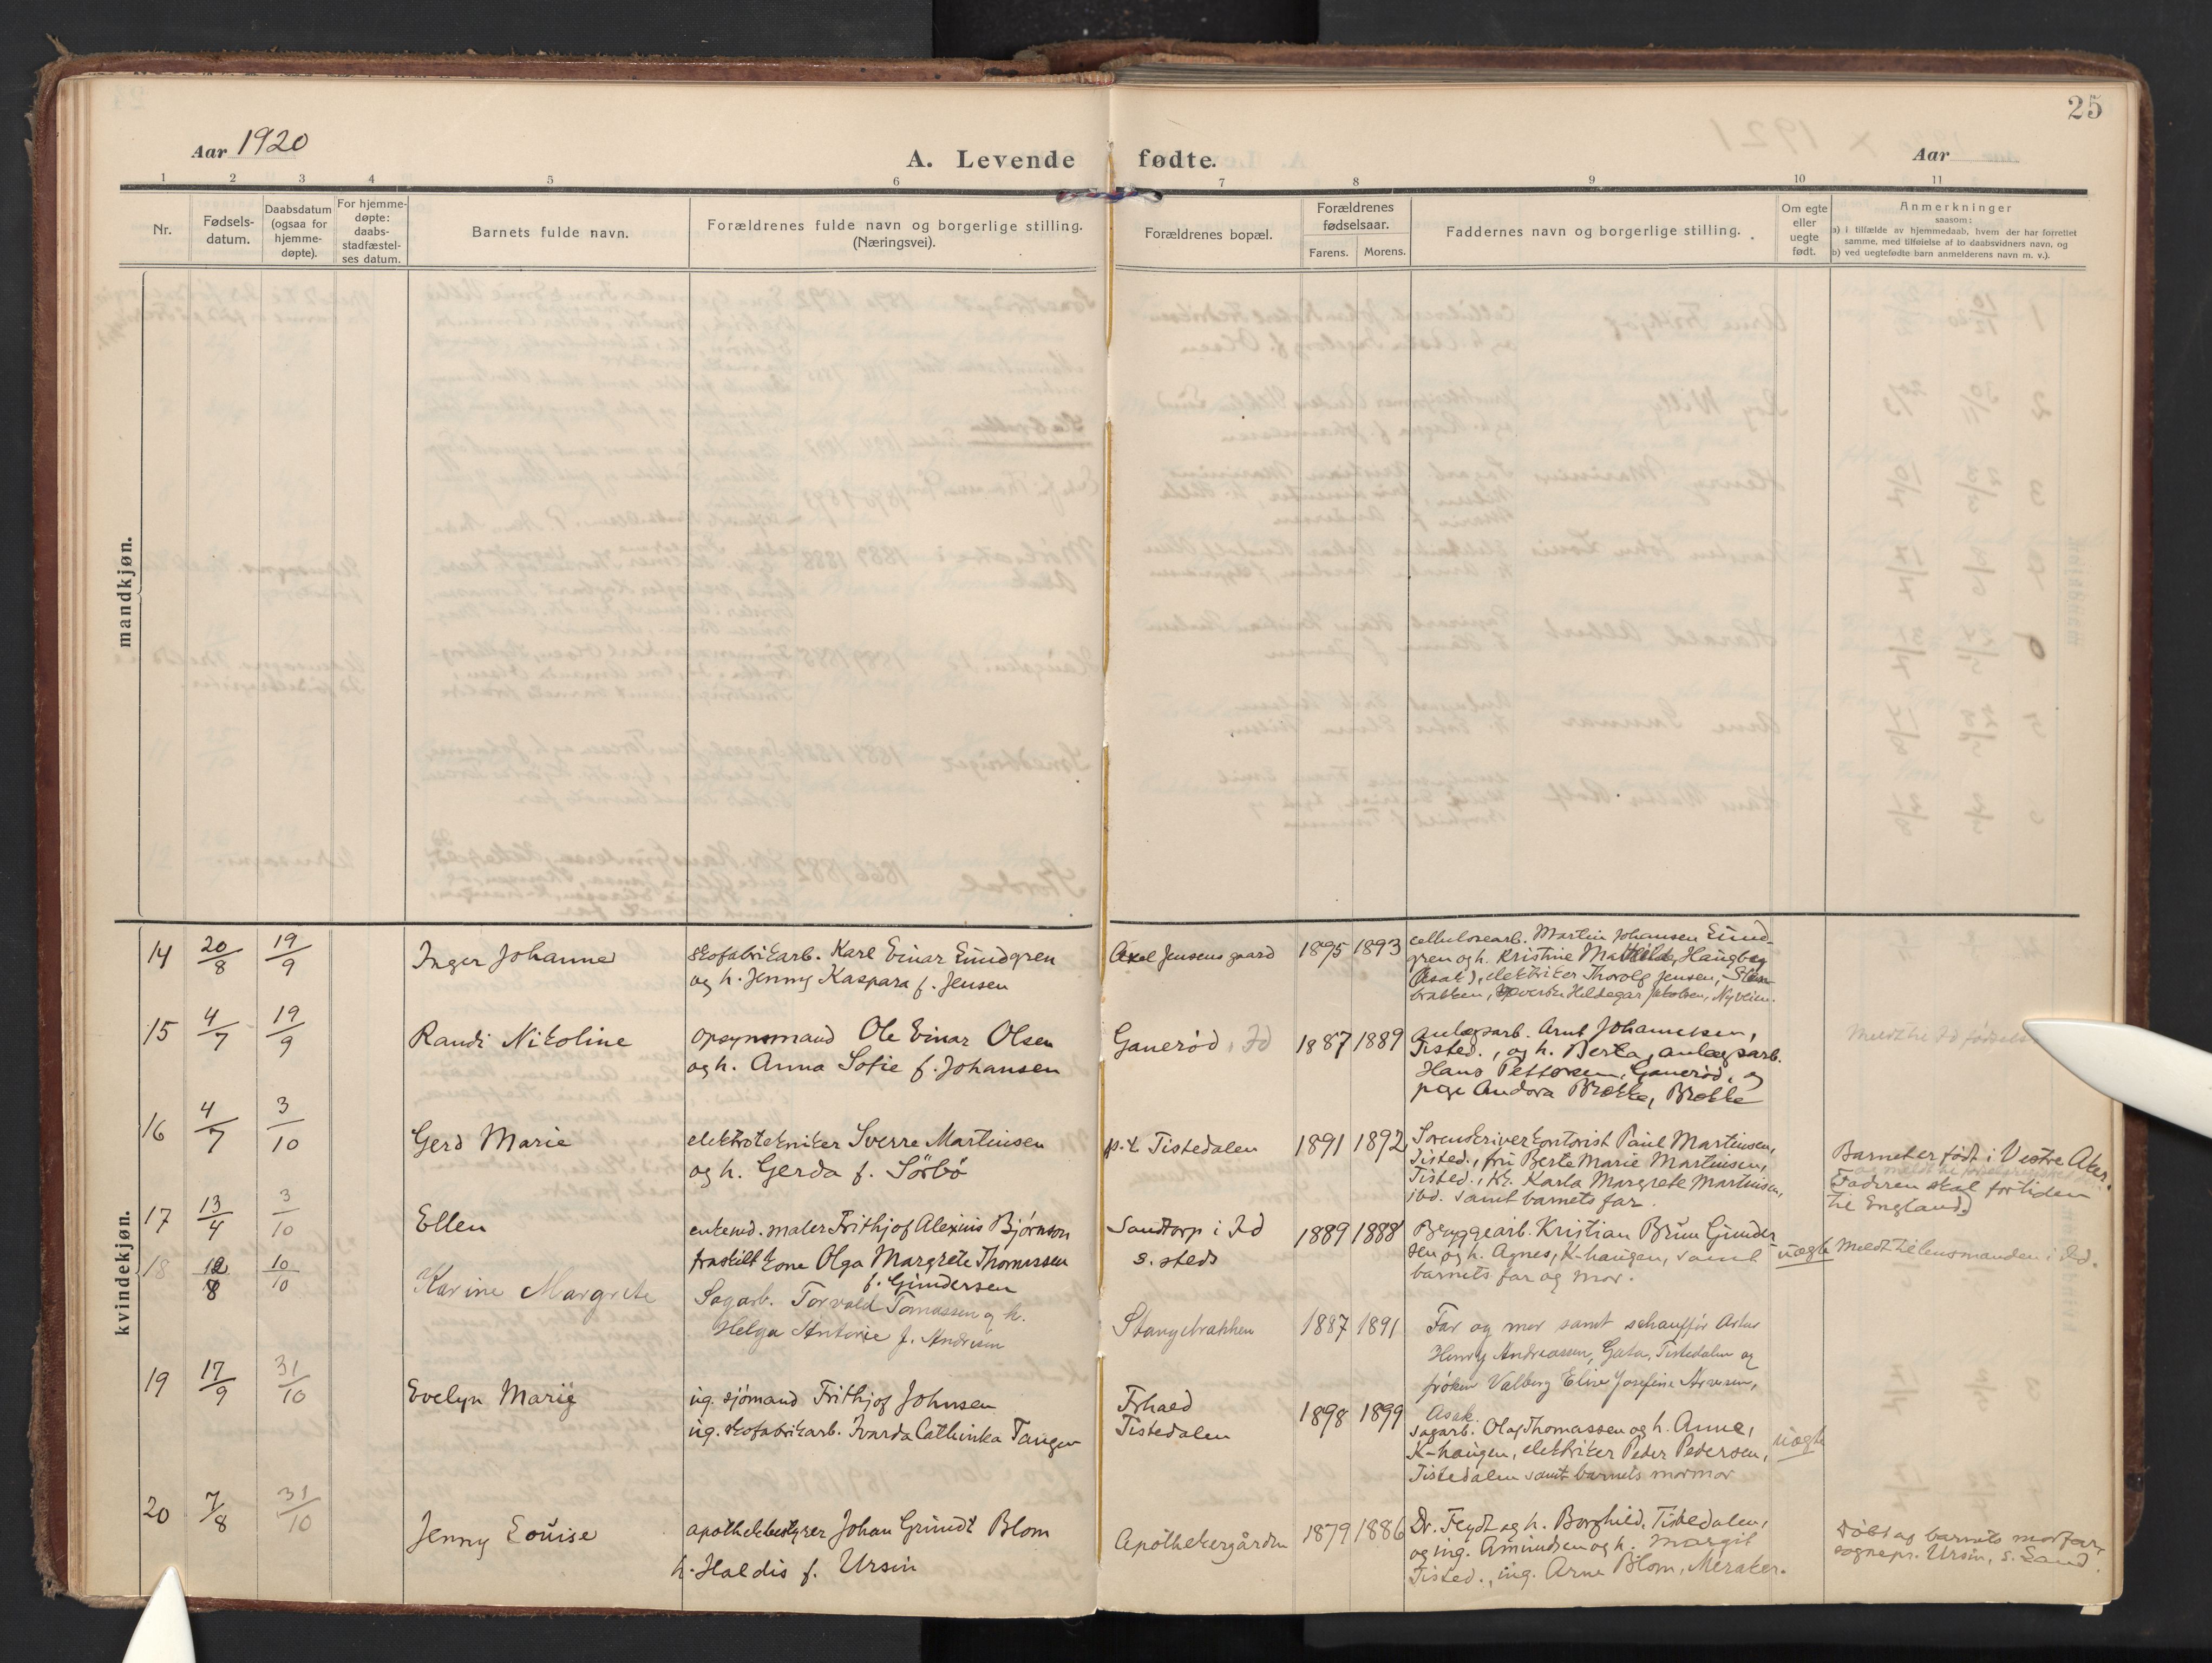 25
Aar 1920
A. Levende fødte.
Aar
1 2 3 4 5 6 7 8 9 10 11
Nr.
Fødsels-
datum.
Daabsdatum
(ogsaa for
hjemme-
døpte).
For hjemme-
døpte:
daabs-
stadfæstel-
ses datum.
Barnets fulde navn.
Forældrenes fulde navn og borgerlige stilling.
(Næringsvei).
Forældrenes bopæl.
Forældrenes
fødselsaar.
Farens. Morens.
Faddernes navn og borgerlige stilling.
Om egte
eller
uegte
født.
Anmerkninger
saasom:
a) i tilfælde av hjemmedaab, hvem der har forrettet
samme, med tilføielse af to daabsvidners navn, og
b) ved uegtefødte barn anmelderens navn m. v.).
mandkjøn.
kvindekjøn.
14 20/8 19/9
Inger Johanne
skofabrikarb. Karl Einar Lundgren
og h. Jenny Kaspara f. Jensen
Axel Jensens gaard
1895 1893
cellulosearb. Martin Johansen Lund-
gren og h. Kristine Mathilde, Haugberg
(Asak), elektriker Thorolf Jensen,
Hildegar Jakobsen, Nyveien.
15 4/7 19/9
Randi Nikoline
opsynsmand Ole Einar Olsen
og h. Anna Sofie f. Johansen
Ganerød, Id
1887 1889
anlægsarb. Arnt Johannesen,
Tisted., og h. Berta, anlægsarb.
Hans Pettersen, Ganerød, og
pige Andora Brække, Brække
Meldt til Id fødsels
16 4/7 3/10
Gerd Marie
elektrotekniker Sverre Martinsen
og h. Gerda f. Sörbö
p.t. Tistedalen
1891 1892
Sorenskriverkontorist Paul Martinsen,
Tisted., fru Berte Marie Martinsen,
Tisted., frk. Karla Margrete Martinsen,
ibd. samt barnets far.
Barnet er født i Vestre Aker.
Faderen skal for tiden
til England.
17 13/4 3/10
Ellen
enkemd. maler Frithjof Alexius Bjørnson
fraskilt kone Olga Margrete Thomassen
f. Gundersen
Sandtorp i Id
s. steds
1889 1888
Byggearb. Kristian Brun Gunder
sen og h. Agnes, K-haugen, samt
barnets far og mor.
uegte
Meldt til lensmanden i Id.
18 12/8 10/10
Karine Margrete
Sagarb. Torvald Tomassen og h.
Helga Antonie f. Andresen
Stangebrakken
1887 1891
Far og mor samt schauffør Artur
Henry Andreassen, Gata, Tistedalen og
frøken Valborg Elise Josefine Arvesen,
Asak.
19 17/9 31/10
Evelyn Marie
ug. sjömand Frithjof Johnsen
ug. skofabrikarb. Ivarda Cathinka Tangen
Frhald
Tistedalen
1898 1899
sagarb. Olaf Thomassen og h. Anne,
K-haugen, elektriker Peder Pedersen,
Tistedalen samt barnets mormor
uegte
20 7/8 31/10
Jenny Louise
apothekbestyrer Johan Grundt Blom
h. Haldis f. Ursin
Apothekergården
1879 1886
Dr. Feydt og h. Borghild, Tistedalen,
og ing. Amundsen og h. Margit
Tisted., ing. Arne Blom, Meraker.
Döbt av barnets morfar,
sognepr. Ursin, s. Land.